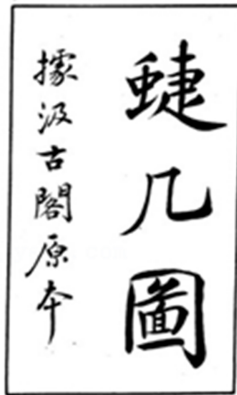 蜨几圖
據汲古閣原本